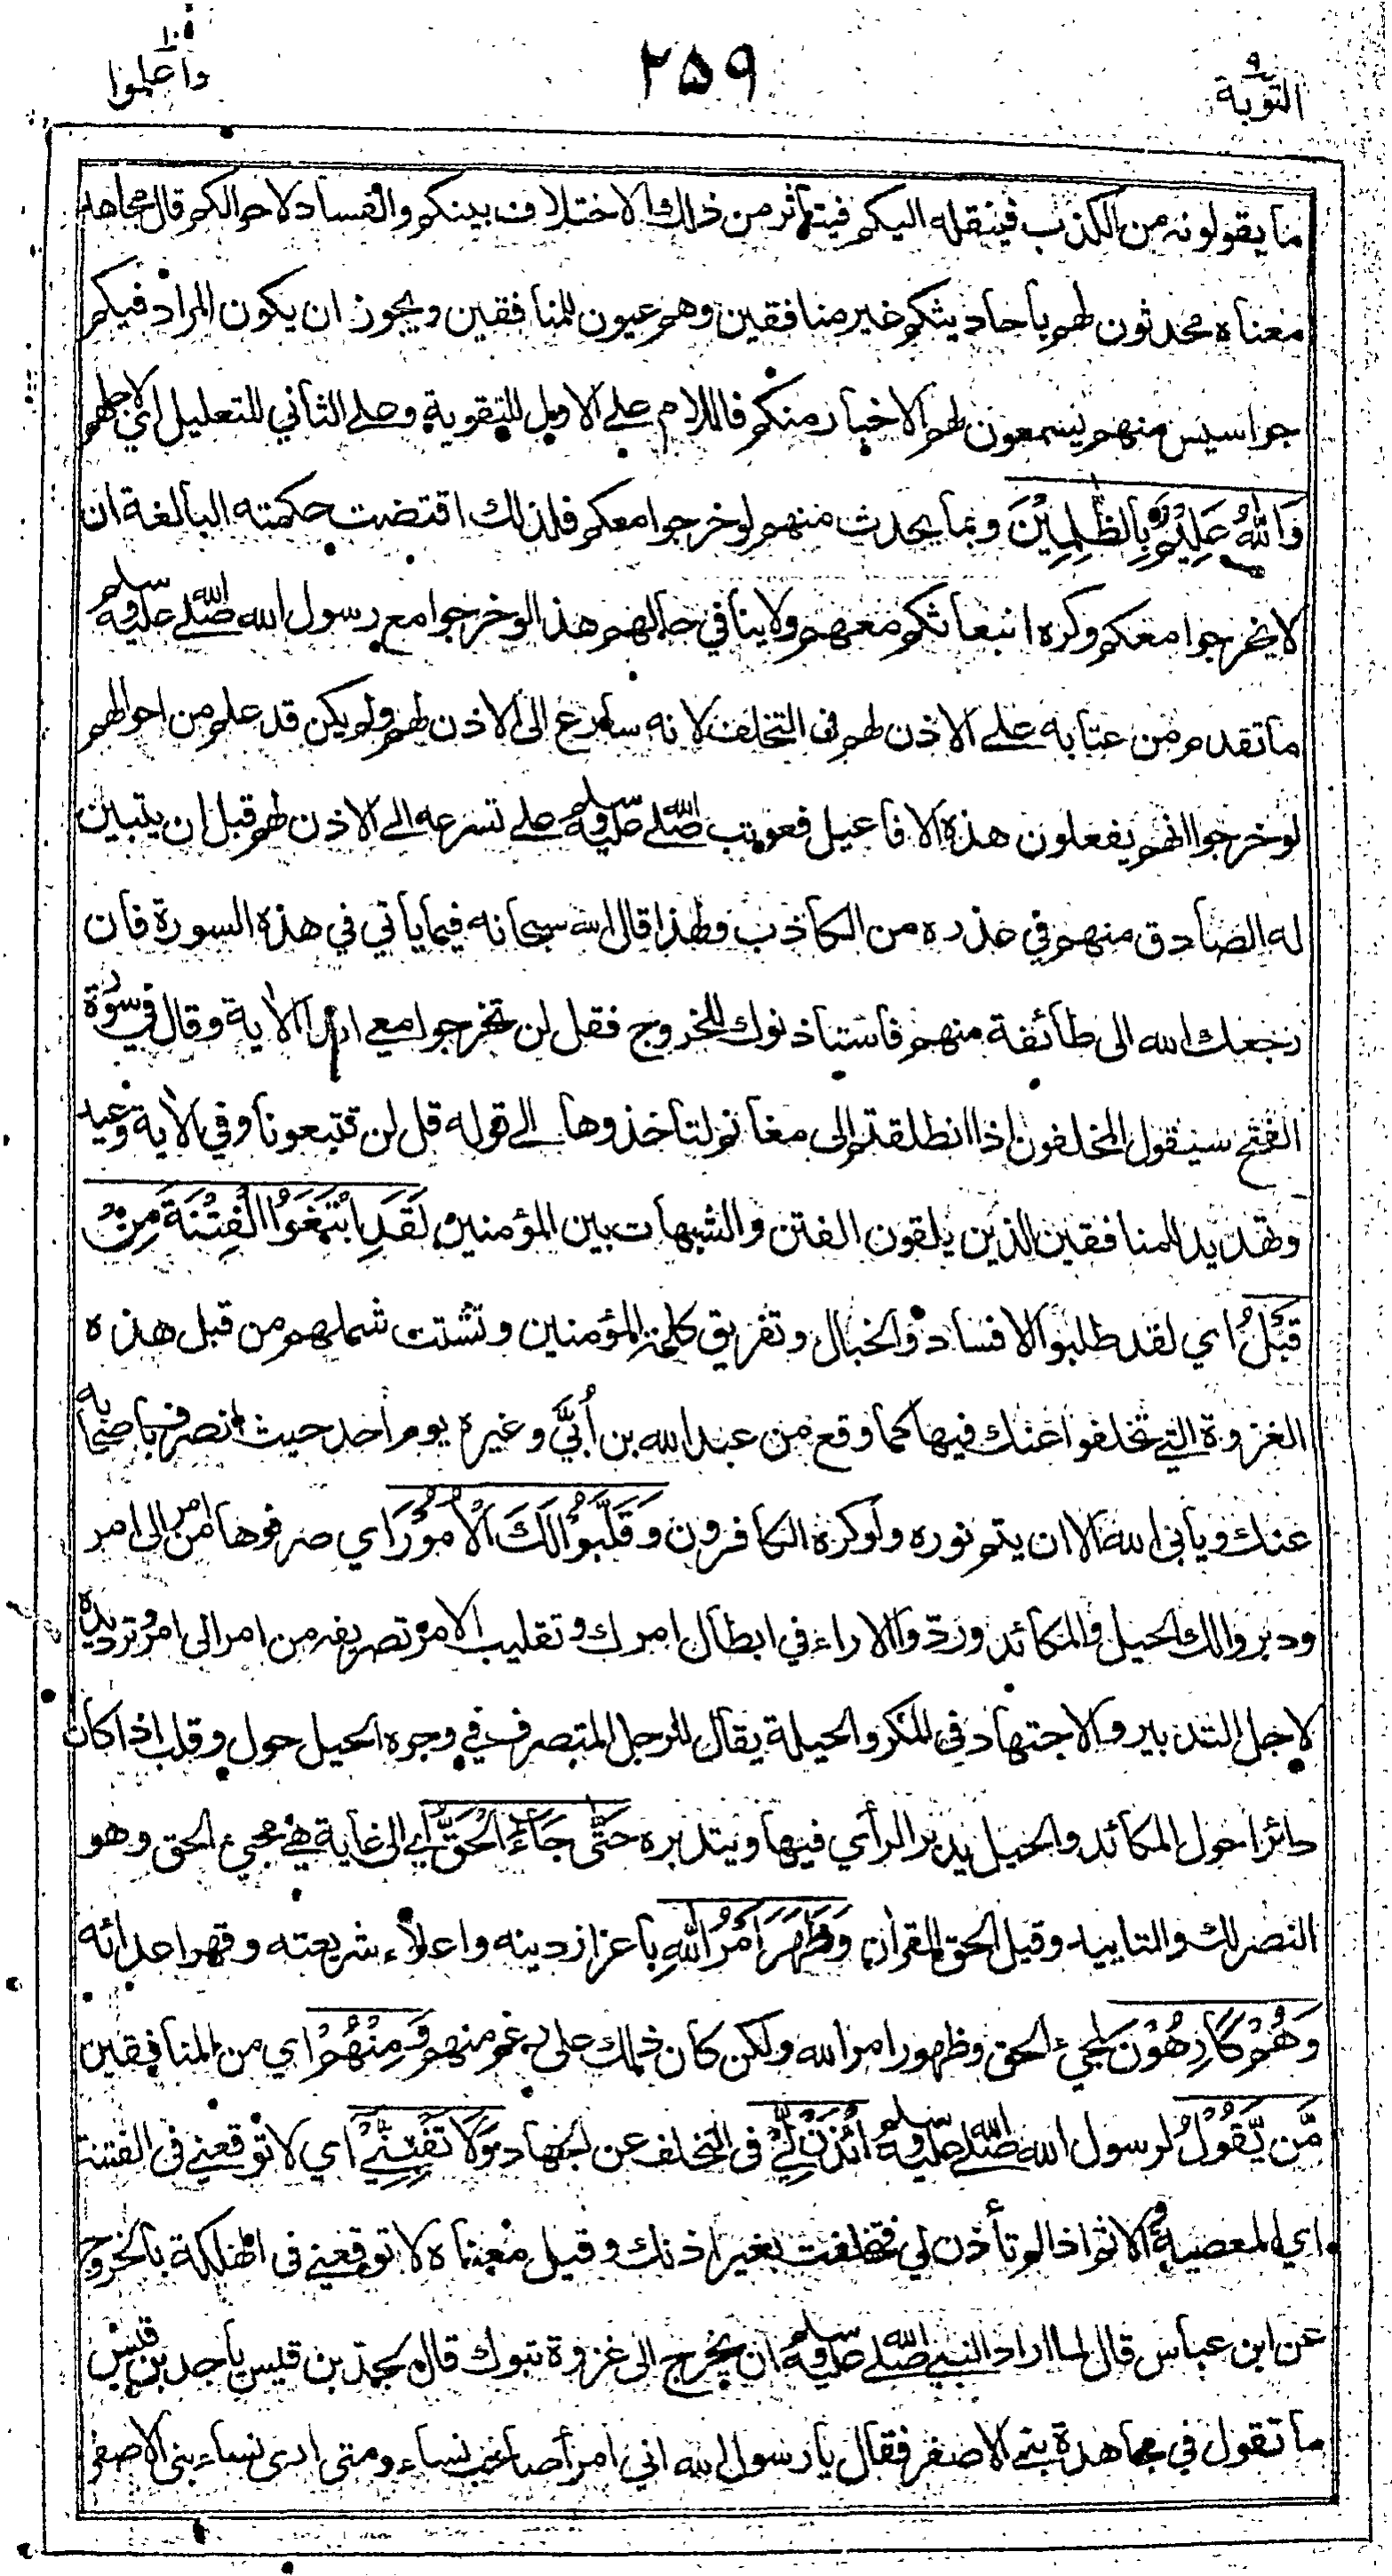 التوبة ٩
٢٥٩
واعلموا ١٠
ما يقولونه من الكذب فينقله اليكم فيتأثر من ذلك الاختلاف بينكم والفساد لاحوالكم قال مجاهد
معناه محدثون لهم بأحاديثكم غير منافقين وهم عيون للمنافقين ويجوز ان يكون المراد فيكم
جواسيس منهم يسمعون لهم الاخبار منكم فاللام على الاول للتقوية وعلى الثاني للتعليل اي لاجلهم
وَاللهُ عَلِيْمٌ بِالظّٰلِمِيْنَ وبما يحدث منهم لو خرجوا معكم فلذلك اقتضت حكمته البالغة ان
لا يخرجوا معكم وكره انبعاثكم معهم ولا ينافي حالهم هذا لو خرجوا مع رسول الله صلى الله عليه وسلم
ما تقدم من عتابه على الاذن لهم في التخلف لانه سارع الى الاذن لهم ولم يكن قد علم من احوالهم
لو خرجوا انهم يفعلون هذه الافاعيل فعوتب صلى الله عليه وسلم على تسرعه الى الاذن لهم قبل ان يتبين
له الصادق منهم في عذره من الكاذب ولهذا قال الله سبحانه فيما يأتي في هذه السورة فان
رجعك الله الى طائفة منهم فاستأذنوك للخروج فقل لن تخرجوا معي ابدا الاية وقال في سورة
الفتح سيقول المخلفون اذا انطلقتم الى مغانم لتأخذوها الى قوله قل لن تتبعونا وفي الاية وعيد
وتهديد للمنافقين الذين يلقون الفتن والشبهات بين المؤمنين لَقَدِ ابْتَغَوُا الْفِتْنَةَ مِنْ
قَبْلُ اي لقد طلبوا الافساد والخبال وتفريق كلمة المؤمنين وتشتت شملهم من قبل هذه
الغزوة التي تخلفوا عنك فيها كما وقع من عبد الله بن أُبَيّ وغيره يوم احد حيث انصرف باصحابه
عنك ويأبى الله الا ان يتم نوره ولو كره الكافرون وَقَلَّبُوْا لَكَ الْاُمُوْرَ اي صرفوها من امر الى امر
ودبروا لك الحيل والمكائد وردّوا الاراء في ابطال امرك وتقليب الامر تصريفه من امر الى امر وترديده
لاجل التدبير والاجتهاد في المكر والحيلة يقال للرجل المتصرف في وجوه الحيل حول وقلب اذا كان
دائرا حول المكائد والحيل يدبر الرأي فيها ويتدبره حَتّٰى جَاۤءَ الْحَقُّ اي الى غاية هي مجيء الحق وهو
النصر لك والتاييد وقيل الحق القرأن وَظَهَرَ اَمْرُ اللهِ باعزاز دينه واعلاء شريعته وقهر اعدائه
وَهُمْ كَارِهُوْنَ لمجيء الحق وظهور امر الله ولكن كان ذلك على رغم منهم وَمِنْهُمْ اي من المنافقين
مَّن يَّقُوْلُ لرسول الله صلى الله عليه وسلم ائْذَنْ لِّيْ في التخلف عن الجهاد وَلَا تَفْتِنِّيْ اي لا توقعني في الفتنة
اي المعصية والاثم اذا لم تأذن لي فتخلفت بغير اذنك وقيل معناه لا توقعني في الهلكة بالخروج
عن ابن عباس قال لما اراد النبي صلى الله عليه وسلم ان يخرج الى غزوة تبوك قال لجد بن قيس يا جد بن قيس
ما تقول في مجاهدة بني الاصفر فقال يا رسول الله اني امرأ صاحب نساء ومتى ارى نساء بني الاصفر